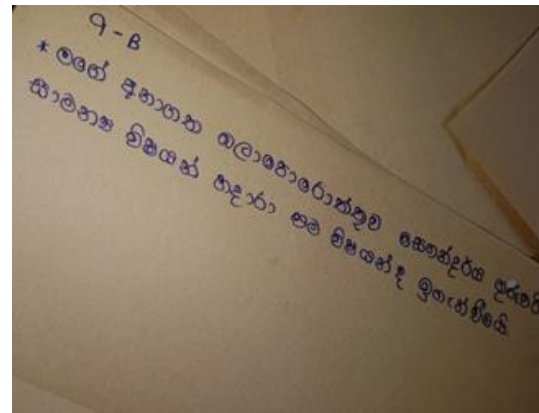 9-B
* මගේ අනාගත බලාපොරොත්තුව සෞන්දර්ය
සාමන්‍ය විෂයන් හදාරා එම විෂයන්ද ඉගැන්වීමයි.